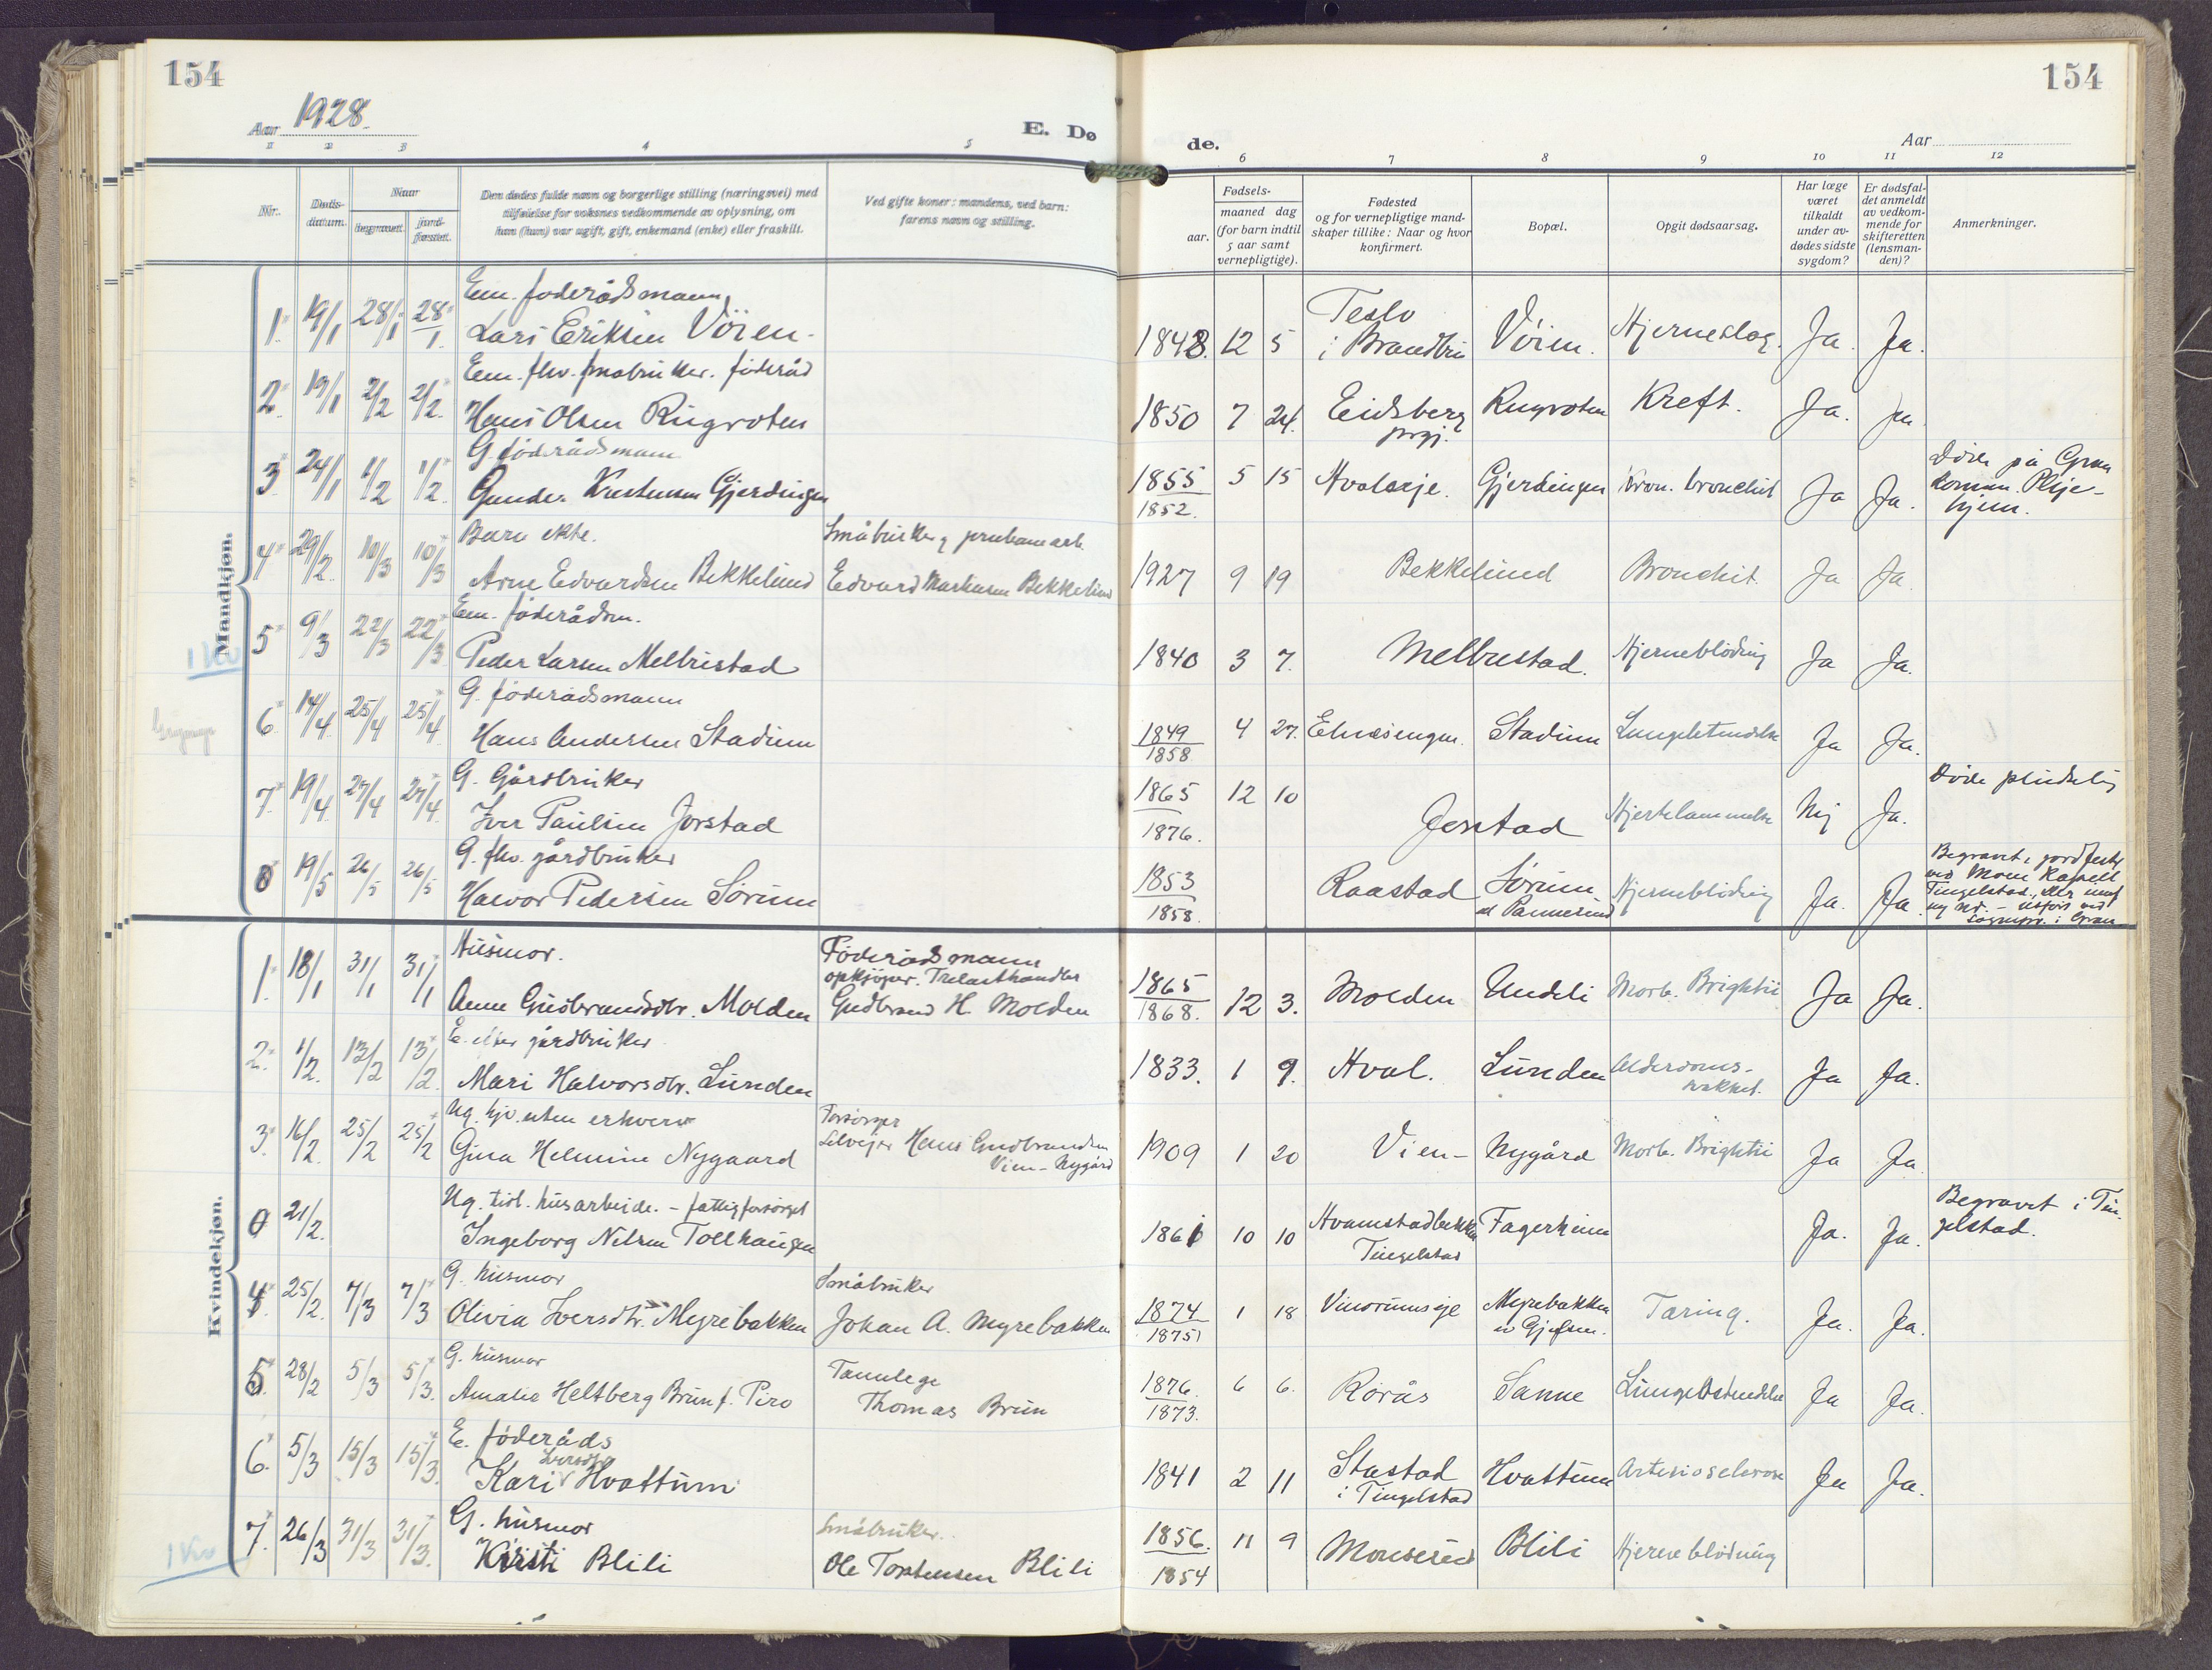 154
154
Aar 1928.
E. Dø
de.
Aar
1 2 3 4 5 6 7 8 9 10 11 12
Nr.
Døds-
datum.
Naar
begravet.
jord-
fæstet.
Den dødes fulde navn og borgerlige stilling (næringsvei) med
tilføielse for voksnes vedkommende av oplysning, om
han (hun) var ugift, gift, enkemand (enke) eller fraskilt.
Ved gifte koner: mandens, ved barn:
farens navn og stilling.
Fødsels-
aar.
maaned dag
(for barn indtil
5 aar samt
vernepligtige).
Fødested
og for vernepligtige mand-
skaper tillike: Naar og hvor
konfirmert.
Bopæl.
Opgit dødsaarsag.
Har læge
været
tilkaldt
under av-
dødes sidste
sygdom?
Er dødsfal-
det anmeldt
av vedkom-
mende for
skifteretten
(lensman-
den)?
Anmerkninger.
Mandkjøn.
Em. føderådsmann
1. 19/1 28/1 28/1. Lars Eriksen Vöien. 1848. 12 5 Teslo i Brandbu Vöien. Hjerneslag. Ja. Ja.
Em. fhv. småbruker. föderåd
2. 19/1 2/2 2/2. Hans Olsen Ringroten 1850 7 24. Eidsberg prgj. Ringroten Kreft. Ja. Ja
G. föderådsmann
3 24/1 1/2 1/2. Gunder Kristensen Gjerdingen 1855 1852. 5 15 Hvalseje. Gjerdingen Kron. bronchit Ja Ja. Döde på Gran komm. Pleje-
hjem.
Barn ekte. Småbruker
4 29/2. 10/3 10/3 Arne Edvardsen Bekkelund Edvard Martinsen Bekkelund 1927 9 19 Bekkelund Bronchit. Ja Ja
Em. föderådsm.
5 9/3 22/3 22/3 Peder Larsen Melbustad 1840 3 7. Melbustad. Hjerneblödning Ja Ja.
G. föderådsmann
6 14/4. 25/4 25/4 Hans Andersen Stadum 1849 1858. 4 27. Stadum Lungebetendelse Ja Ja.
G. Gårdbruker
7 19/4 27/4 27/4. Iver Paulsen Jorstad 1865 1876. 12 10 Jorstad Hjertelammelse Nej Ja. Döde pludselig
G. fhv. gårdbruker
8 19/5 26/5 26/5 Halvor Pedersen Sörum 1853 1858. Raastad Sörum Hjerneblödning Ja. Ja. Begravet, jordfestet
ved Moen Kapell
Tingelstad
Kvindekjøn.
Husmor. Föderådsmann
opkjöper. Trelasthandler
1. 18/1 31/1 31/1 Anne Gudbrandsdtr. Molden Gudbrand H. Molden 1865 1868. 12 3. Molden Undeli Morb. Brightii Ja Ja.
E. efter gårdbruker
2. 1/2. 13/2 13/2. Mari Halvorsdtr. Lunden 1833. 1 9. Hval. Lunden Alderdoms-
svakhet. Ja Ja.
Ug. hjv. uten erhverv Forsörger
3. 16/2. 25/2 25/2 Gina Helmine Nygaard Selvejer Hans Gudbrandsen
Vien-Nygård 1909 1 20 Vien- Nygård Morb. Brightii Ja Ja.
Ug. tidl. husarbeide. - fattigforsörget
0 21/2. Ingeborg Nilsen Tollhaugen 1861 10 10 Hvamstadbakken
Tingelstad Fagerheim Ja. Ja. Begravet i Tin-
gelstad.
G. husmor Småbruker
4. 25/2. 7/3 7/3 Olivia Iversdtr. Myrebakken Johan A. Myrebakken 1874 1875 1 18 Vinorumseje Myrebakken Tæring. Ja. Ja.
G. husmor Tannlege
5 28/2 5/3 5/3. Amalie Heltberg Brun f. Piro Thomas Brun 1876. 1873. 6 6. Rörås Sanne Lungebetendelse Ja Ja.
E. föderåds
6. 5/3 15/3 15/3. Kari Iversdtr Hvattum 1841 2 11 Stastad
i Tingelstad Hvattum Arteriosclerose Ja Ja.
G. husmor Småbruker.
7. 26/3 31/3 31/3. Kirsti Blili Ole Torstensen Blili 1856. 1854 11 9 Monserud Blili Hjerneblödning